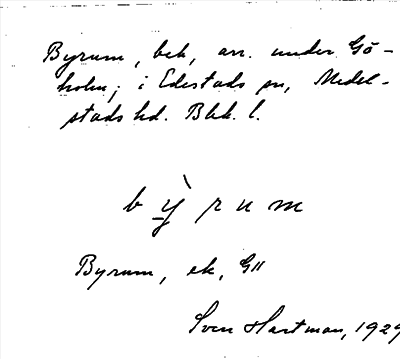 Byrum, bek, arr. under Gö-
holm; i Edestads sn, Medel-
stads hd. Blek. l.
b ỳ̲ r u m
Byrum, ek, G11
Sven Hartman, 1929